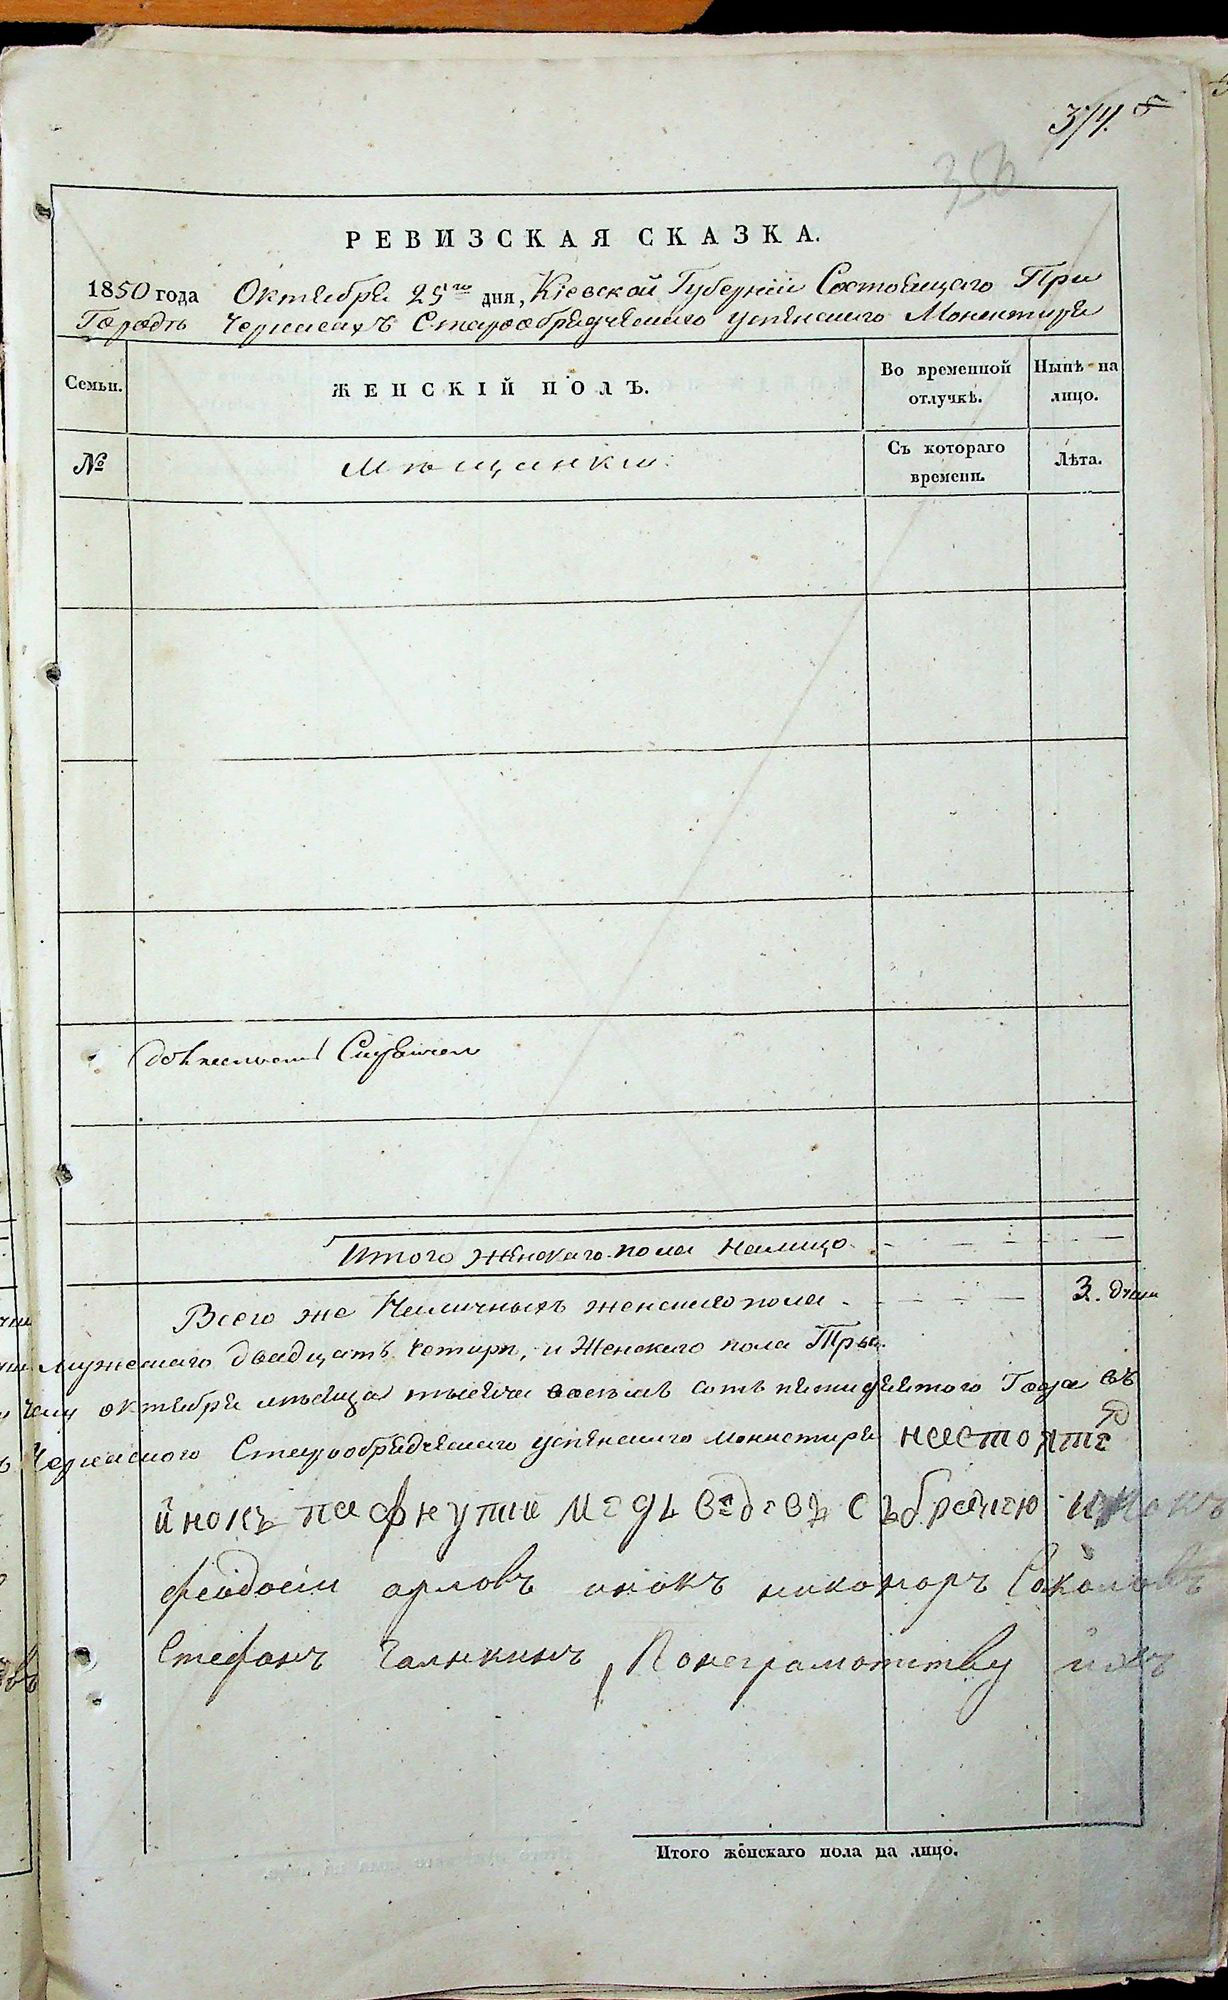 374.
356
РЕВИЗСКАЯ СКАЗКА.
1850 года Октября 25го дня, Кіевской Губерніи Состоящаго При
Городѣ Черкасахъ Старообрядческаго успенскаго Монастиря
Семьи. ЖЕНСКІЙ ПОЛЪ. Во временной отлучкѣ. Нынѣ на лицо.
№ Мѣщанки Съ котораго времени. Лѣта.
Итого женскаго пола налицо
Всего же Наличныхъ женскаго пола 3. души
мужескаго двадцать четири, и Женскаго пола Три
октября мѣсяца тысяча восемь сотъ пятидесятого Года въ
Черкаского Старообрядческаго успенскаго монастиря настояте
инокъ пафнутий медьведевъ събратією инокъ
феодосіи орловъ инокъ никоноръ Соколовъ
Стефанъ Галкинъ, Понеграмотству ихъ
Итого женскаго пола на лицо.